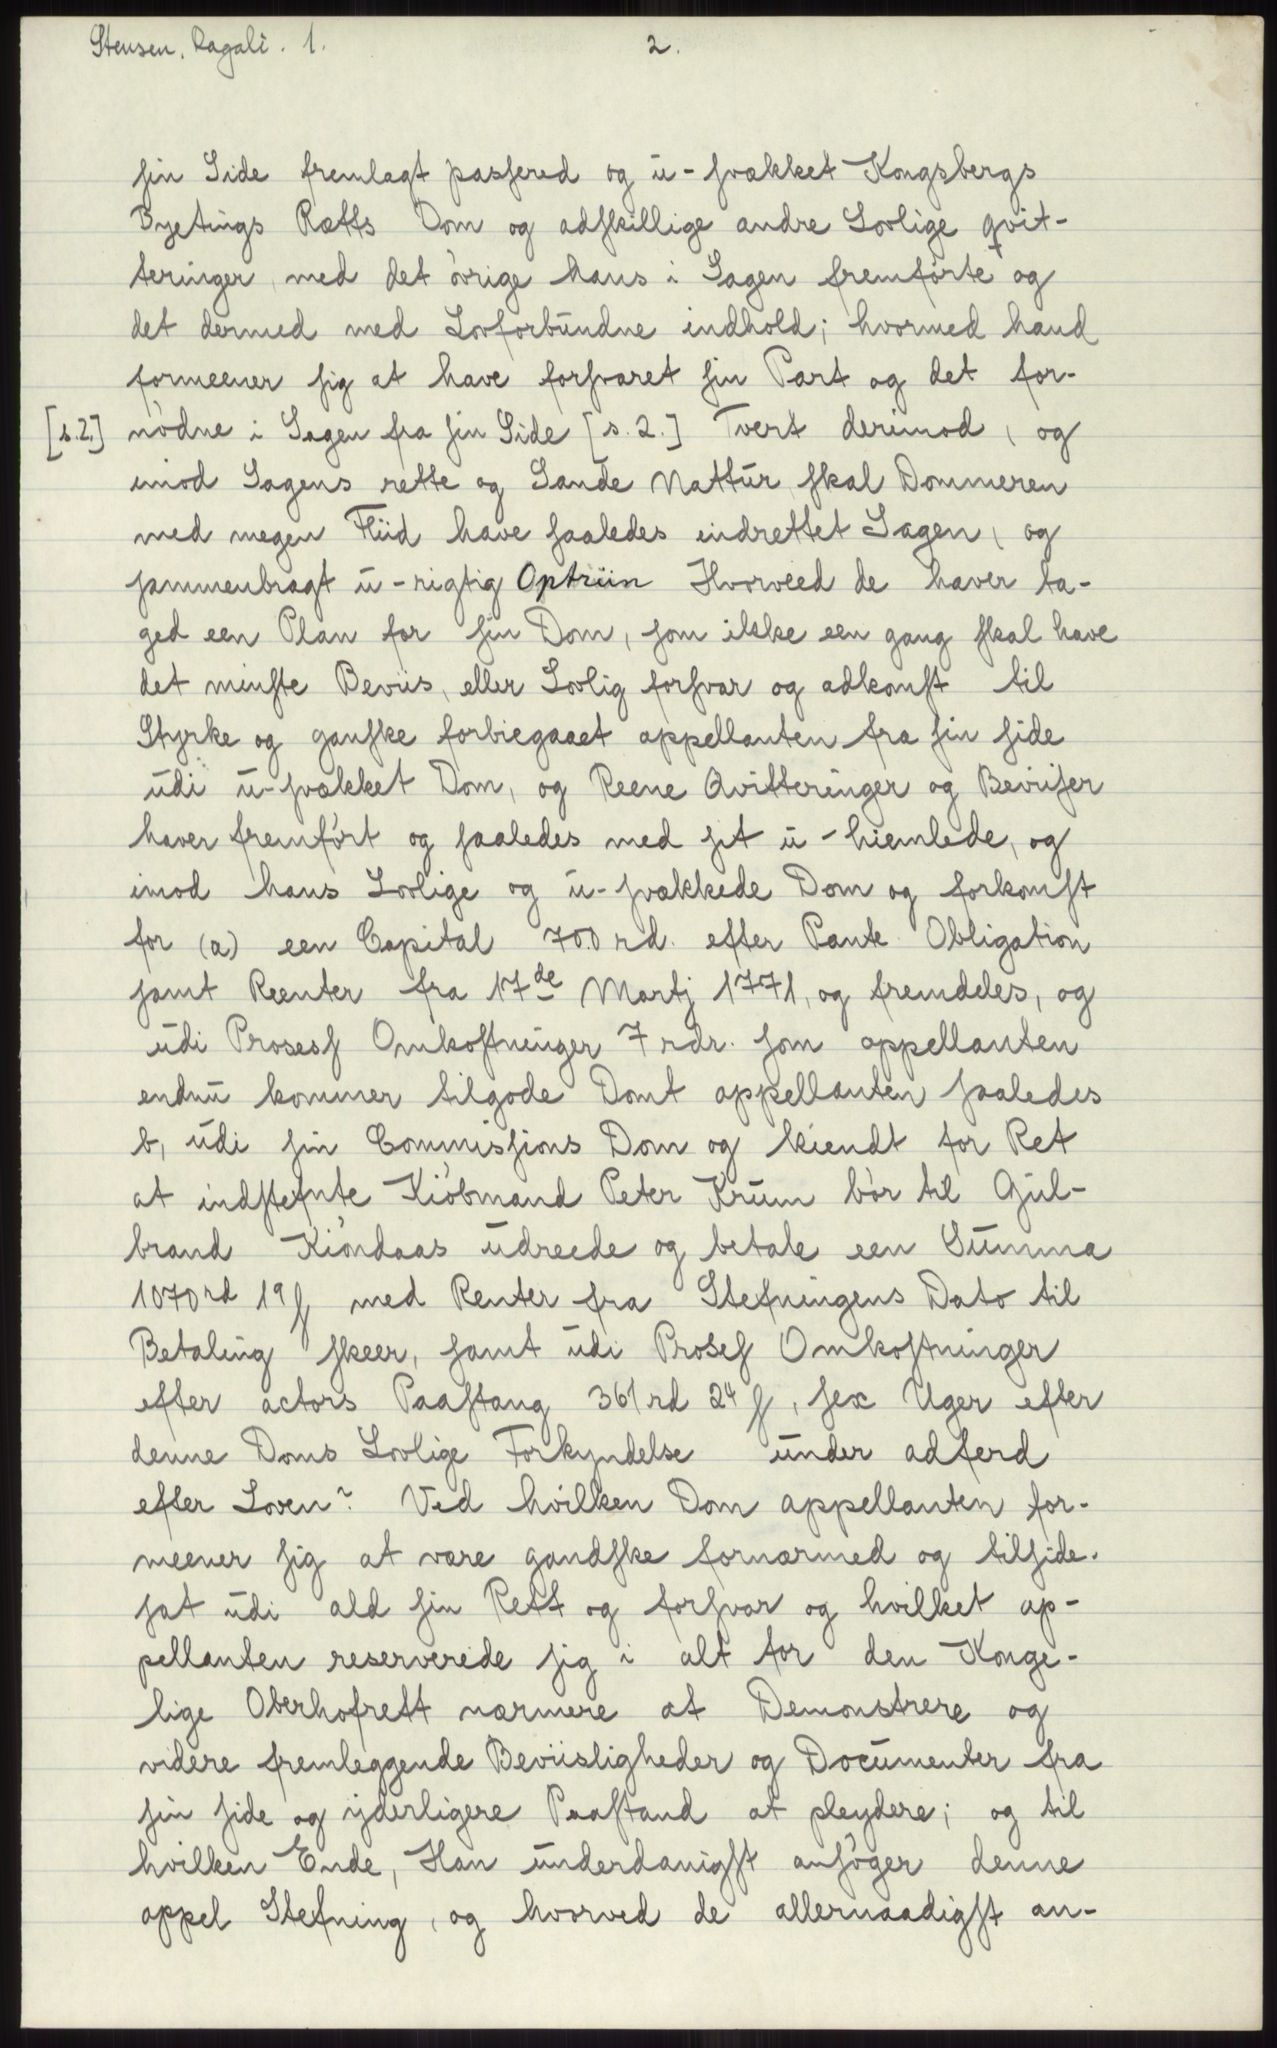 Stensen, Ragali. 1.
2.
sin Side fremlagt passered og u-svækket Kongsbergs
Byetings Rætts Dom og adskillige andre Lovlige qvit-
teringer, med det övrige hans i Sagen fremförte og
det dermed med Lovforbundne indhold; hvormed hand
formeener sig at have forsvaret sin Part og det for-
[s.2.] nödne i Sagen fra sin Side [s. 2.] Tvert derimod, og
imod Sagens rette og Sande Nattur, skal Dommeren
med megen Fliid have saaledes indrettet Sagen, og
sammenbragt u-rigtig Optriin Hvorveed de haver ta-
ged een Plan for sin Dom, som ikke een gang skal have
det minste Beviis, eller Lovlig forsvar og adkomst til
Styrke og ganske forbiegaaet appellanten fra sin side
udi u-svækket Dom, og Reene Qvitteringer og Beviiser
haver fremfört og saaledes med sit u-hiemlede, og
imod hans Lovlige og u-svækkede Dom og forkomst
for (a) een Capital 700 rd. efter Pante Obligation
samt Reenter fra 17de Martj 1771, og fremdeles, og
udi Prosess Omkostninger 7 rdr. som appellanten
endnu kommer tilgode Domt appellanten saaledes
b, udi sin Commissions Dom og kiendt for Ret
at indstefnte Kiöbmand Peter Krum bör til Gul-
brand Kiöndaas udreede og betale een Summa
1070rd 19 s med Renter fra Stefningens Dato til
Betaling skeer, samt udi Proses Omkostninger
efter actors Paastang 361 rd 24 s, sex Uger efter
denne Doms Lovlige Forkyndelse under adferd
efter Loven". Ved hvilken Dom appellanten for-
meener sig at være gandske fornærmed og tilside-
sat udi ald sin Rett og forsvar og hvilket ap-
pellanten reserverede sig i alt for den Konge-
lige Oberhofrett nærmere at Demonstrere og
videre fremleggende Beviisligheder og Documenter fra
sin side og ijderligere Paastand at pleydere; og til
hvilken Ende, Han underdanigst ansöger denne
appel Stefning, og hvorved de allernaadigst an-